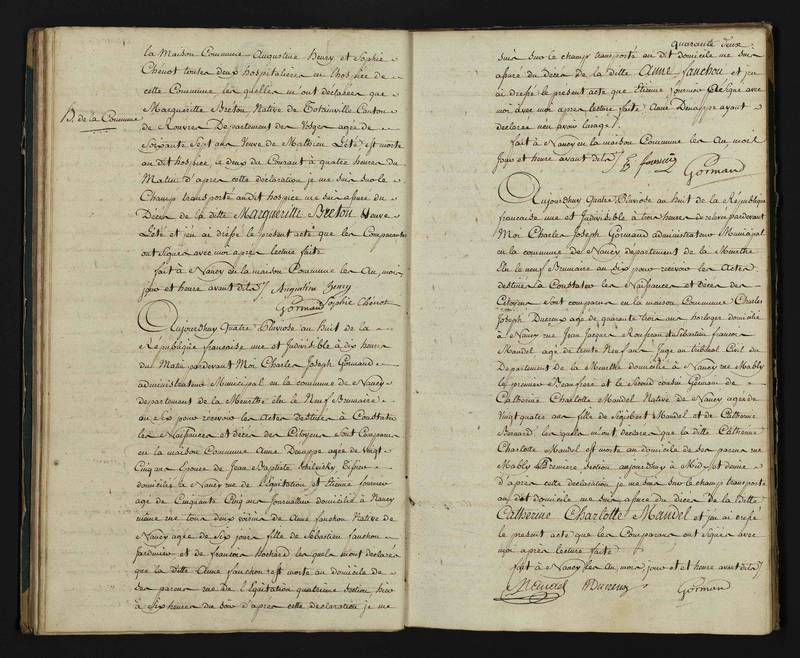 la Maison Commune Augustine Henry et Sophie
Chénot toutes deux hospitalieres en l'hospice de
cette Commune les quelles m'ont declarées que
Margueritte Breton Native de Totainville Canton
D. de la Commune
de Rouvre Departement des Vosges agée de
Soixante Sept ans Veuve de Mathieu Lété, est morte
au dit hospice le deux du Courant à quatre heures du
Matin d'apres cette déclaration je me suis sur le
Champ transporté audit hospice me suis assuré du
Décès de la ditte Margueritte Breton Veuve
Lété et j'en ai dressé le present acte que les Comparantes
ont Signés avec moi apres lecture faite
fait à Nancy en la maison Commune les An, mois,
jour et heure avant dits Augustine henry
Sophie Chénot
Gormand
Aujourdhuy Quatre Pluviose an huit de la
République francaise une et Indivisible à dix heures
du Matin pardevant Moi Charles Joseph Gormand
administrateur Municipal en la commune de Nancy
departement de la Meurthe élu le Neuf Brumaire
an Six pour recevoir les Actes destinés à Constater
les Naissances et décès des Citoyens Sont Comparus
en la maison Commune Anne Denappe agée de Vingt
Cinq ans Epouse de Jean Baptiste
domiciliée à Nancy rue de l'Equitation et Etienne fournier
agé de Cinquante Cinq ans Journallier domicilié à Nancy
même rue tous deux voisins de Anne fanchon Native de
Nancy agée de Six jours fille de Sébastien fanchon
jardinier et de francoise les quels m'ont declarés
que la ditte Anne fanchon est morte au domicile de
ses parens rue de l'Equitation quatrieme Section, hier
à Six heures du soir d'apres cette déclaration je me
quarante deux
suis sur le champ transporté au dit domicile me suis
assuré du Décès de la ditte Anne fanchon et j'en
ai dressé le present acte que Etienne fournier a Signé avec
moi apres lecture faite, Anne Denappe ayant
declarée n'en avoir l'usage
fait à Nancy en la maison Commune les An, mois,
jour et heure avant dits E fournier
Gormand
Aujourdhuy Quatre Pluviose an huit de la République
francaise une et Indivisible à trois heures de relevée pardevant
Moi Charles Joseph Gormand administrateur Municipal
en la commune de Nancy département de la Meurthe
élu le neuf Brumaire an Six pour recevoir les Actes
destinés à Constater les Naissances et Décès des
Citoyens Sont comparus en la maison Commune Charles
Joseph Ducreux agé de quarante trois ans horloger domicilié
à Nancy rue Jean Jacques Rousseau et Sebastien francois
Mandel agé de trente Neuf ans Juge au tribunal Civil du
Departement de la Meurthe domicilié à Nancy rue Mably
le premier Beaufrere et le Second cousin Germain de
Catherine Charlotte Mandel Native de Nancy agée de
Vingt quatre ans fille de Sigisbert Mandel et de Catherine
Bernard les quels m'ont declarés que la ditte Catherine
Charlotte Mandel est morte au domicile de ses parens rue
Mably Premiere Section aujourdhuy à Midi et demie
d'apres cette déclaration je me suis sur le champ transporté
au dit domicile me suis assuré du Décès de la ditte
Catherine Charlotte Mandel et j'en ai dressé
le present acte que les Comparans ont Signés avec
moi apres lecture faite
fait à Nancy les An, mois, jour et heure avant dits
Mandel Ducreux Gormand